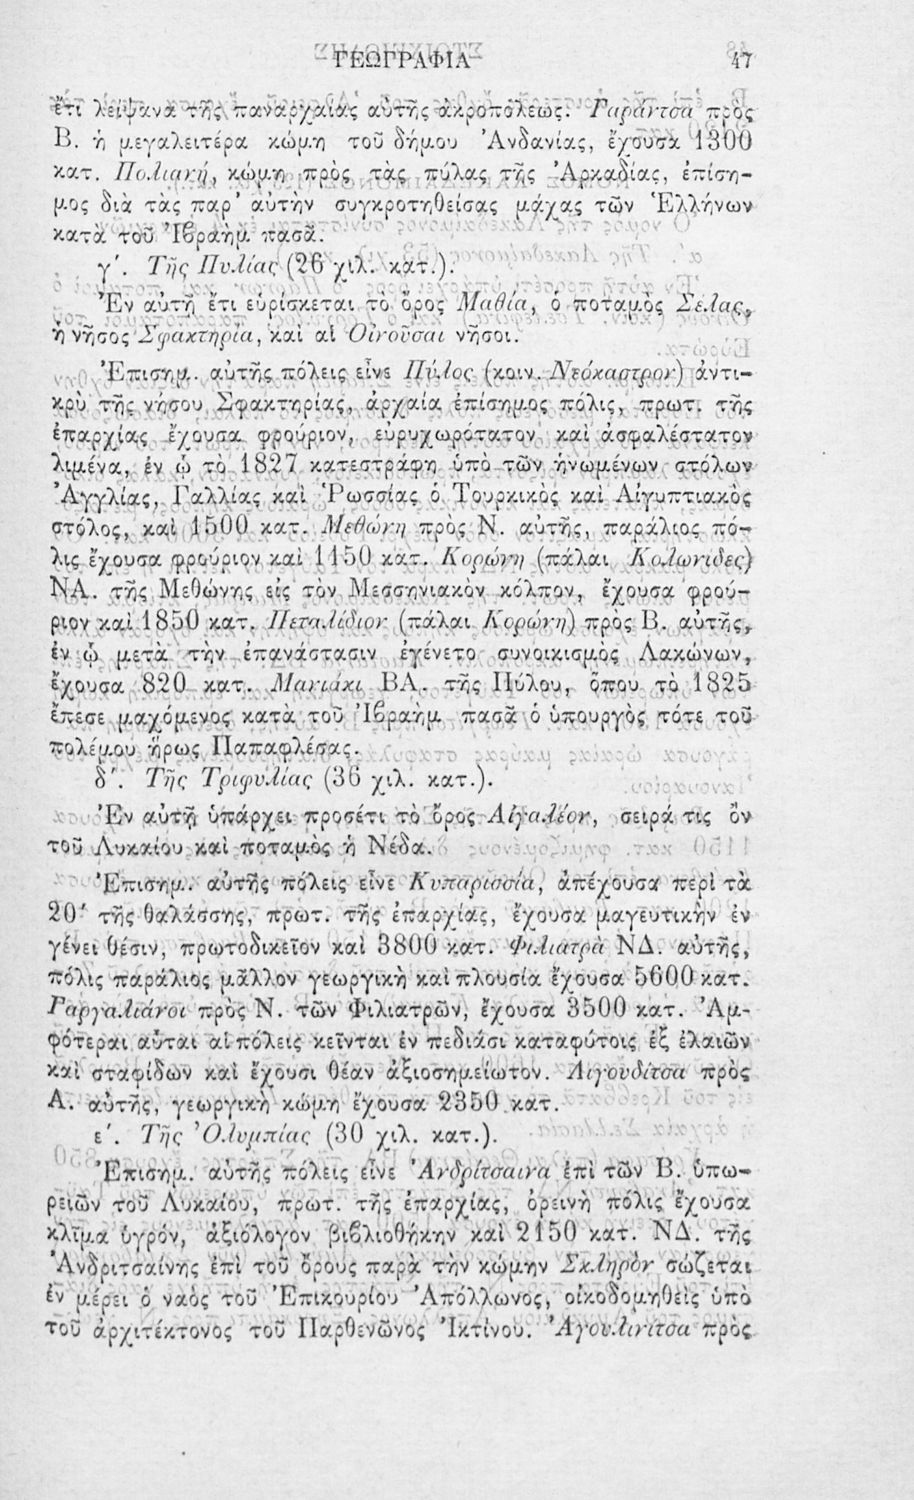 ΓΕΩΓΡΑΦΙΑ 47
ἔτι λείψανα τῆς παναρχαίας αὐτῆς ἀκροπόλεως. Γαράντσα πρὸς
Β. ἡ μεγαλειτέρα κώμη τοῦ δήμου Ἀνδανίας, ἔχουσα 1300
κατ. Πολιακή, κώμη πρὸς τὰς πύλας τῆς Ἀρκαδίας, ἐπίση-
μος διὰ τὰς παρ' αὐτὴν συγκροτηθείσας μάχας τῶν Ἑλλήνων
κατὰ τοῦ Ἰβραὴμ πασᾶ.
γ'. Τῆς Πυλίας (26 χιλ. κατ.).
Ἐν αὐτῇ ἔτι εὑρίσκεται τὸ ὄρος Μαθία, ὁ ποταμὸς Σέλας,
ἡ νῆσος Σφακτηρία, καὶ αἱ Οἰνοῦσαι νῆσοι.
Ἐπισημ. αὐτῆς πόλεις εἶνε Πύλος (κοιν. Νεόκαστρον) ἀντι-
κρὺ τῆς νήσου Σφακτηρίας, ἀρχαία ἐπίσημος πόλις, πρωτ. τῆς
ἐπαρχίας ἔχουσα φρούριον, εὐρυχωρότατον καὶ ἀσφαλέστατον
λιμένα, ἐν ᾧ τὸ 1827 κατεστράφη ὑπὸ τῶν ἡνωμένων στόλων
Ἀγγλίας, Γαλλίας καὶ Ῥωσσίας ὁ Τουρκικὸς καὶ Αἰγυπτιακὸς
στόλος, καὶ 1500 κατ. Μεθώνη πρὸς Ν. αὐτῆς, παράλιος πό-
λις ἔχουσα φρούριον καὶ 1150 κατ. Κορώνη (πάλαι Κολωνίδες)
ΝΑ. τῆς Μεθώνης εἰς τὸν Μεσσηνιακὸν κόλπον, ἔχουσα φρού-
ριον καὶ 1850 κατ. Πεταλίδιον (πάλαι Κορώνη) πρὸς Β. αὐτῆς,
ἐν ᾧ μετὰ τὴν ἐπανάστασιν ἐγένετο συνοικισμὸς Λακώνων,
ἔχουσα 820 κατ. Μανιάκι ΒΑ. τῆς Πύλου, ὅπου τὸ 1825
ἔπεσε μαχόμενος κατὰ τοῦ Ἰβραὴμ πασᾶ ὁ ὑπουργὸς τότε τοῦ
πολέμου ἥρως Παπαφλέσας.
δ'. Τῆς Τριφυλίας (36 χιλ. κατ.).
Ἐν αὐτῇ ὑπάρχει προσέτι τὸ ὄρος Αἰγαλέον, σειρά τις ὂν
τοῦ Λυκαίου καὶ ποταμὸς ἡ Νέδα.
Ἐπισημ. αὐτῆς πόλεις εἶνε Κυπαρισσία, ἀπέχουσα περὶ τὰ
20' τῆς θαλάσσης, πρωτ. τῆς ἐπαρχίας, ἔχουσα μαγευτικὴν ἐν
γένει θέσιν, πρωτοδικεῖον καὶ 3800 κατ. Φιλιατρὰ ΝΔ. αὐτῆς,
πόλις παράλιος μᾶλλον γεωργικὴ καὶ πλουσία ἔχουσα 5600 κατ.
Γαργαλιάνοι πρὸς Ν. τῶν Φιλιατρῶν, ἔχουσα 3500 κατ. Ἀμ-
φότεραι αὗται αἱ πόλεις κεῖνται ἐν πεδιάσι καταφύτοις ἐξ ἐλαιῶν
καὶ σταφίδων καὶ ἔχουσι θέαν ἀξιοσημείωτον. Λιγουδίτσα πρὸς
Α. αὐτῆς, γεωργικὴ κώμη ἔχουσα 2350 κατ.
ε'. Τῆς Ὀλυμπίας (30 χιλ. κατ.).
Ἐπισημ. αὐτῆς πόλεις εἶνε Ἀνδρίτσαινα ἐπὶ τῶν Β. ὑπω-
ρειῶν τοῦ Λυκαίου, πρωτ. τῆς ἐπαρχίας, ὀρεινὴ πόλις ἔχουσα
κλῖμα ὑγρόν, ἀξιόλογον βιβλιοθήκην καὶ 2150 κατ. ΝΔ. τῆς
Ἀνδριτσαίνης ἐπὶ τοῦ ὄρους παρὰ τὴν κώμην Σκληρὸν σώζεται
ἐν μέρει ὁ ναὸς τοῦ Ἐπικουρίου Ἀπόλλωνος, οἰκοδομηθεὶς ὑπὸ
τοῦ ἀρχιτέκτονος τοῦ Παρθενῶνος Ἰκτίνου. Ἀγουλινίτσα πρὸς